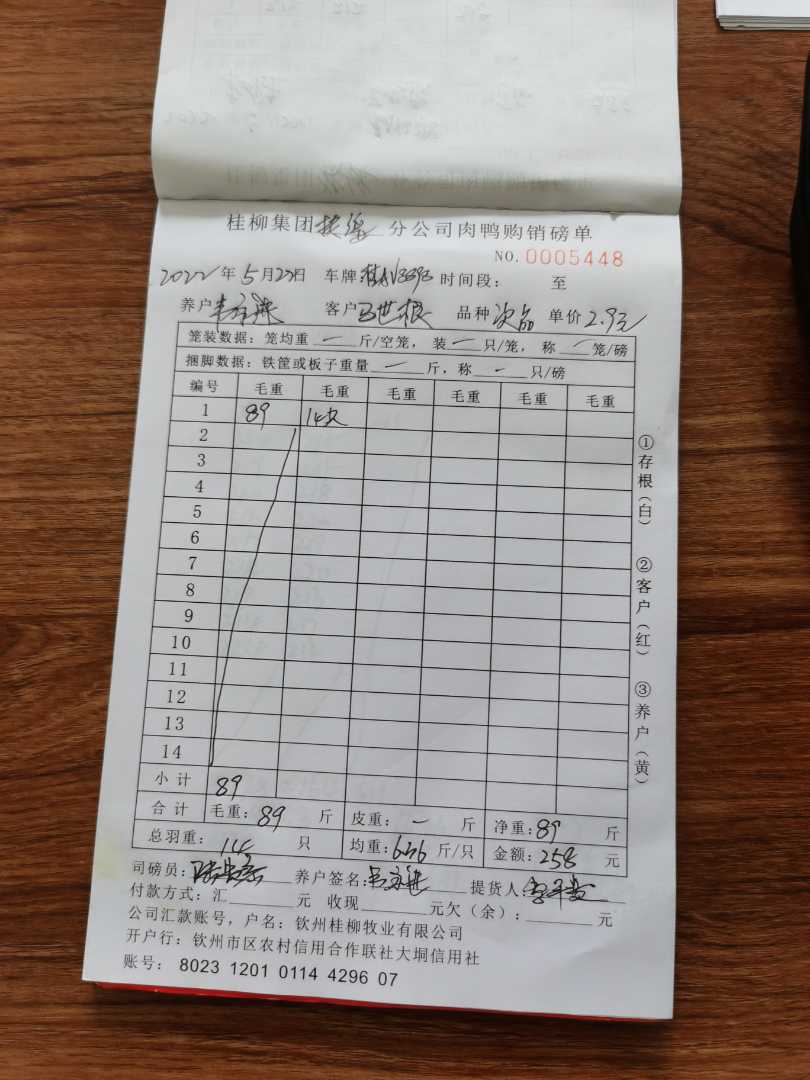 桂柳集团扶绥分公司肉鸭购销磅单
NO. 0005448
2022年5月27日 车牌: 时间段: 至
养户 客户 马世根 品种 次品 单价 2.9元
笼装数据: 笼均重 — 斤/空笼, 装 — 只/笼, 称 — 笼/磅
捆脚数据: 铁筐或板子重量 — 斤, 称 — 只/磅
编号 毛重 毛重 毛重 毛重 毛重 毛重
1 89 14只
2
3
4
5
6
7
8
9
10
11
12
13
14
小计 89
合计 毛重: 89 斤 皮重: — 斤 净重: 89 斤
总羽重: 14 只 均重: 斤/只 金额: 258 元
司磅员: 养户签名: 提货人:
付款方式: 汇 元 收现 元欠(余): 元
公司汇款账号, 户名: 钦州桂柳牧业有限公司
开户行: 钦州市区农村信用合作联社大垌信用社
账号: 8023 1201 0114 4296 07
①存根(白)
②客户(红)
③养户(黄)